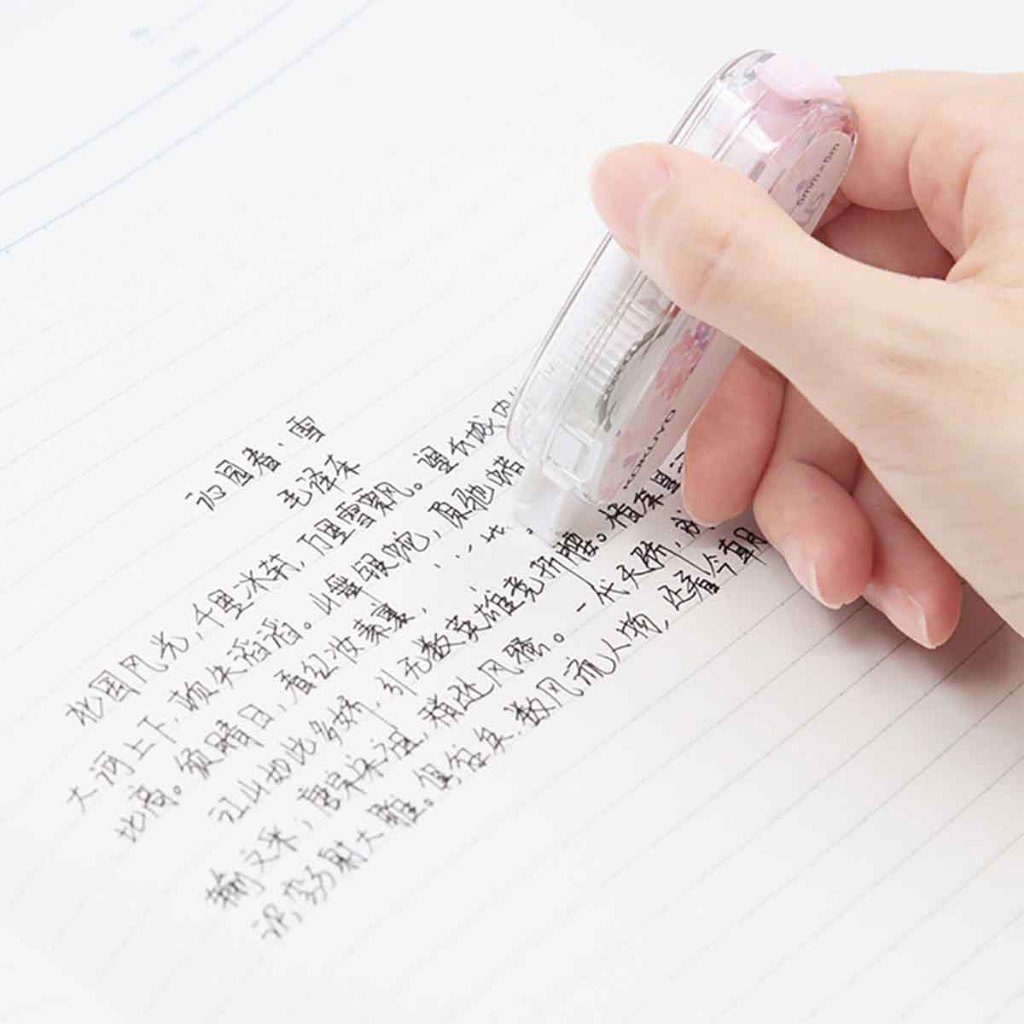 沁园春·雪
毛泽东
北国风光,千里冰封,万里雪飘。望长城内
大河上下,顿失滔滔。山舞银蛇,原驰蜡
比高。须晴日,看红妆素裹,
江山如此多娇,引无数英雄竞折腰。惜秦皇
输文采,唐宗宋祖,稍逊风骚。一代天骄,成
识,弯弓射大雕。俱往矣,数风流人物,还看今朝
KOKUYO